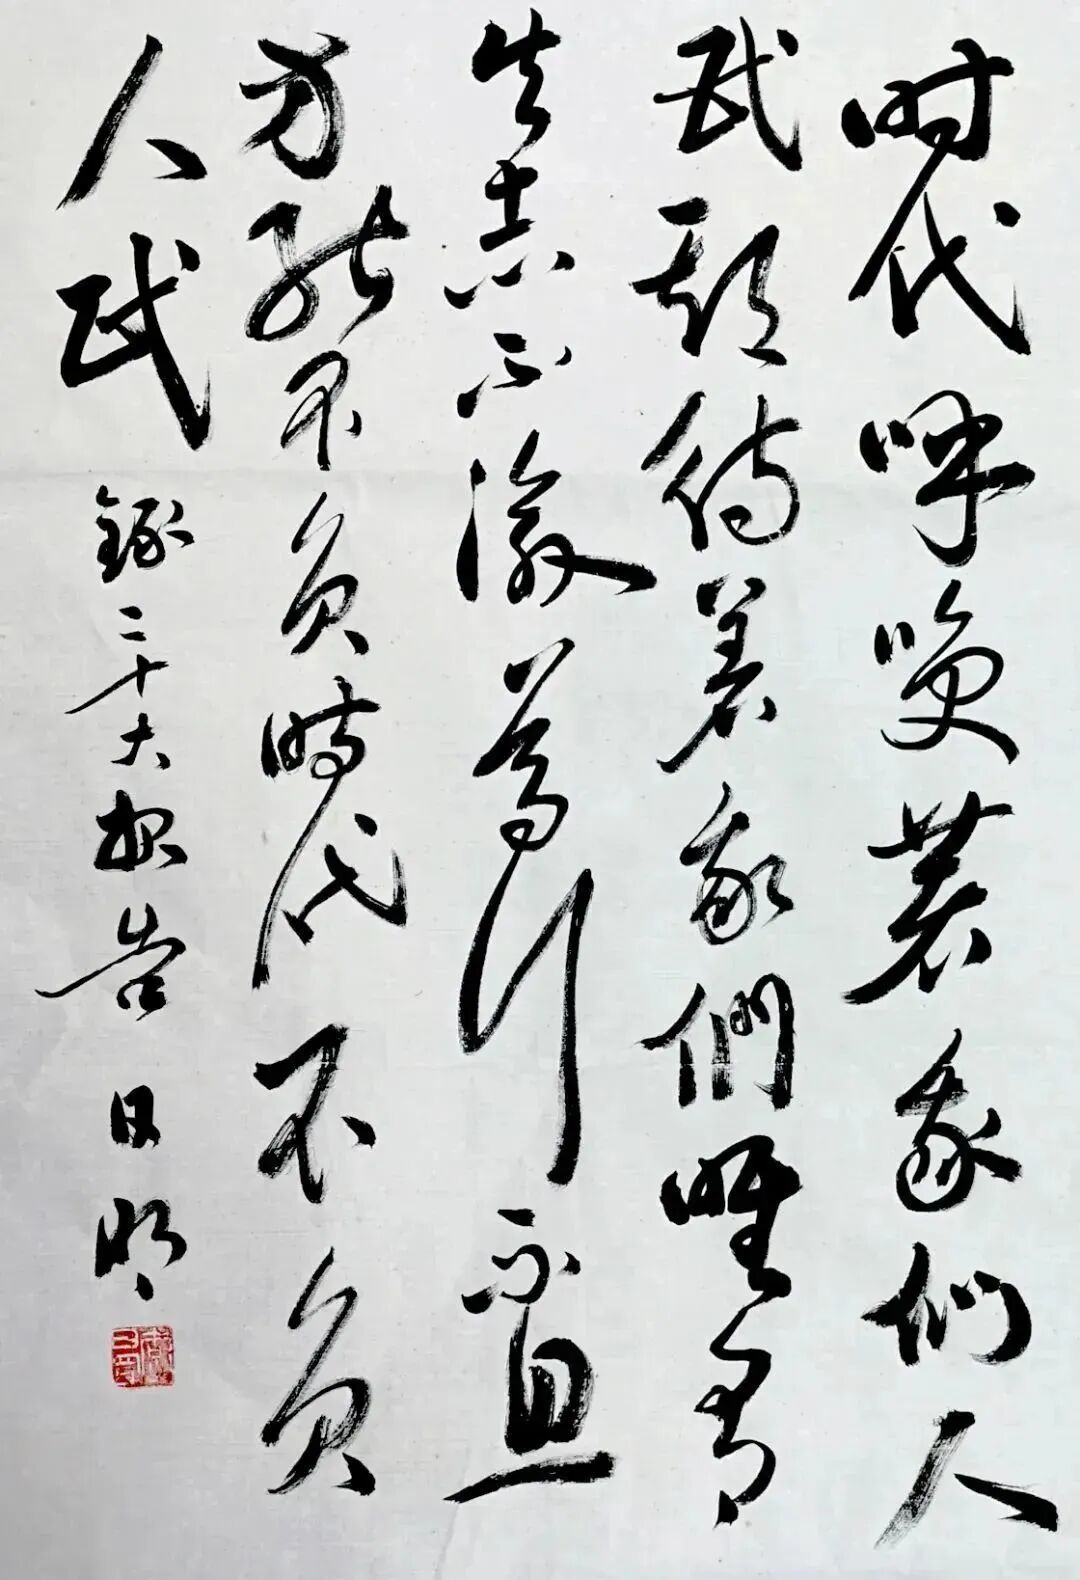 时代呼唤著我们人
民期待着我們唯有
矢志不渝笃行不怠
方能不负時代不负
人民
錄二十大报告